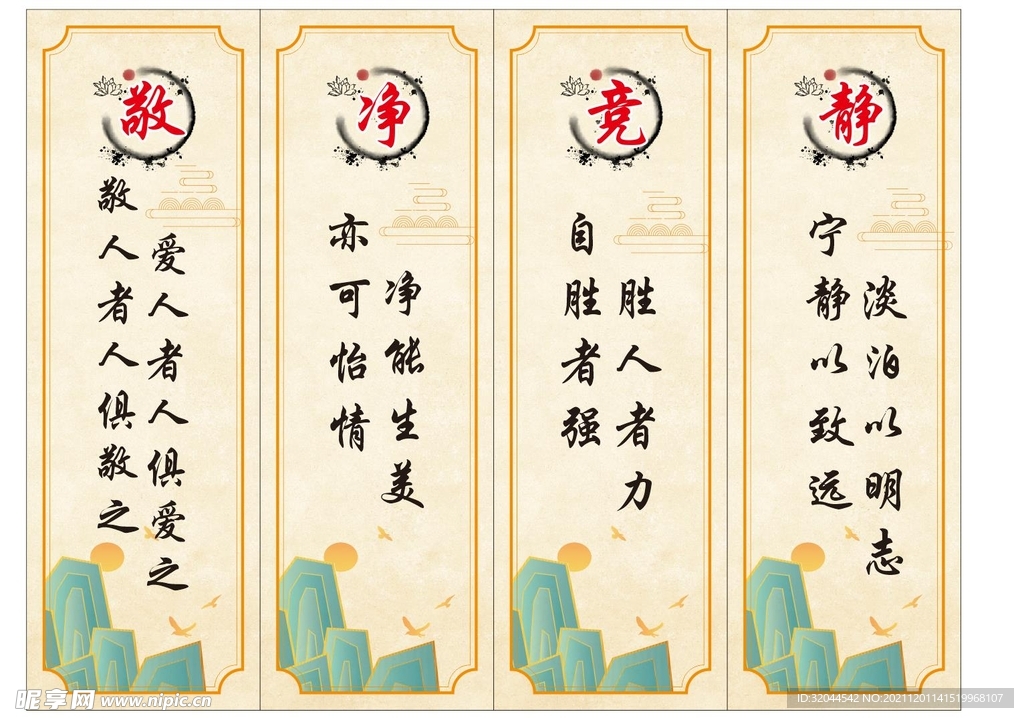 敬
爱人者人俱爱之
敬人者人俱敬之
净
净能生美
亦可怡情
竞
胜人者力
自胜者强
静
淡泊以明志
宁静以致远
昵享网 www.nipic.cn
ID:32044542 NO:20211201141519968107